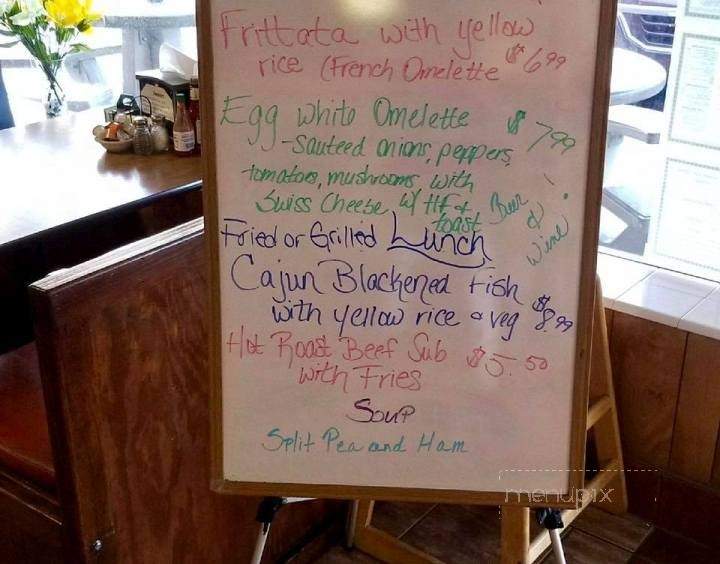 Frittata with yellow
rice (French Omelette $6.99
Egg white Omelette $7.99
-Sauteed onions, peppers,
tomatoes, mushrooms with
Swiss Cheese w/ HF &
toast
Beer
&
Wine
Fried or Grilled Lunch
Cajun Blackened Fish
with yellow rice & veg $8.99
Hot Roast Beef Sub $5.50
with Fries
Soup
Split Pea and Ham
menupix